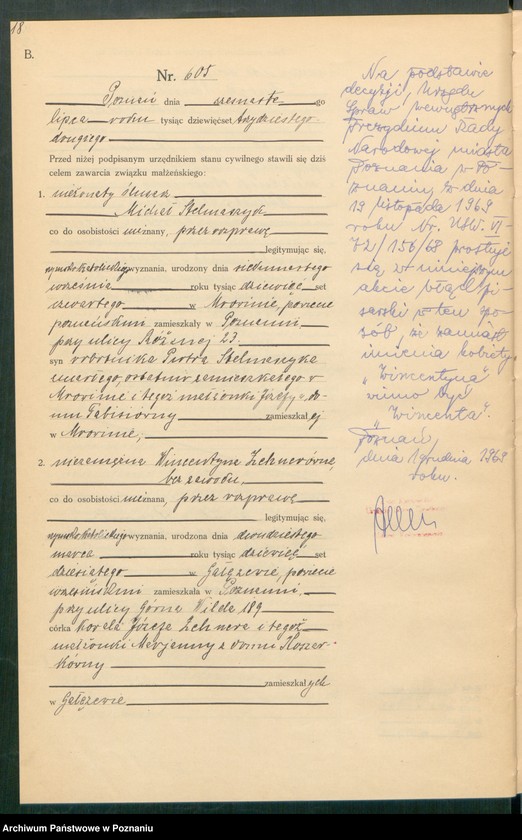 18
B.
Nr. 605
Poznań dnia szesnastego
lipca roku tysiąc dziewięćset trzydziestego
drugiego
Przed niżej podpisanym urzędnikiem stanu cywilnego stawili się dziś
celem zawarcia związku małżeńskiego:
1. nieżonaty
Michał Stelmaszyk
co do osobistości nieznany, przez rozprawę
legitymując się,
wyznania, urodzony dnia siedemnastego
września roku tysiąc dziewięć set
czwartego w Mrowinie, powiecie
poznańskim zamieszkały w Poznaniu
przy ulicy Różnej 23.
syn robotnika Piotra Stelmaszyka
zmarłego, ostatnio zamieszkałego w
Mrowinie i tegoż małżonki Józefy z do-
mu zamieszkałej
w Mrowinie,
2. niezamężna Wincentyna Zehnerówna,
bez zawodu,
co do osobistości nieznana, przez rozprawę
legitymując się,
wyznania, urodzona dnia dwudziestego
marca roku tysiąc dziewięć set
dziesiątego w Gałęzewie, powiecie
wrzesińskim zamieszkała w Poznaniu,
przy ulicy Górna Wilda 189
córka Józefa Zehnera i tegoż
małżonki Marjanny z domu
zamieszkałych
w Gałęzewie
Na podstawie
decyzji Urzędu
Spraw Wewnętrznych
Prezydium Rady
Narodowej miasta
Poznania w Po-
znaniu z dnia
19 listopada 1969
roku Nr. USW. VI-
72/156/68 prostuje
się w niniejszym
akcie błąd pi-
sarski w ten spo-
sób, że zamiast
imienia kobiety
"Wincentyna"
winno być
"Wincenta".
Poznań,
dnia 1 grudnia 1969
roku.
Archiwum Państwowe w Poznaniu